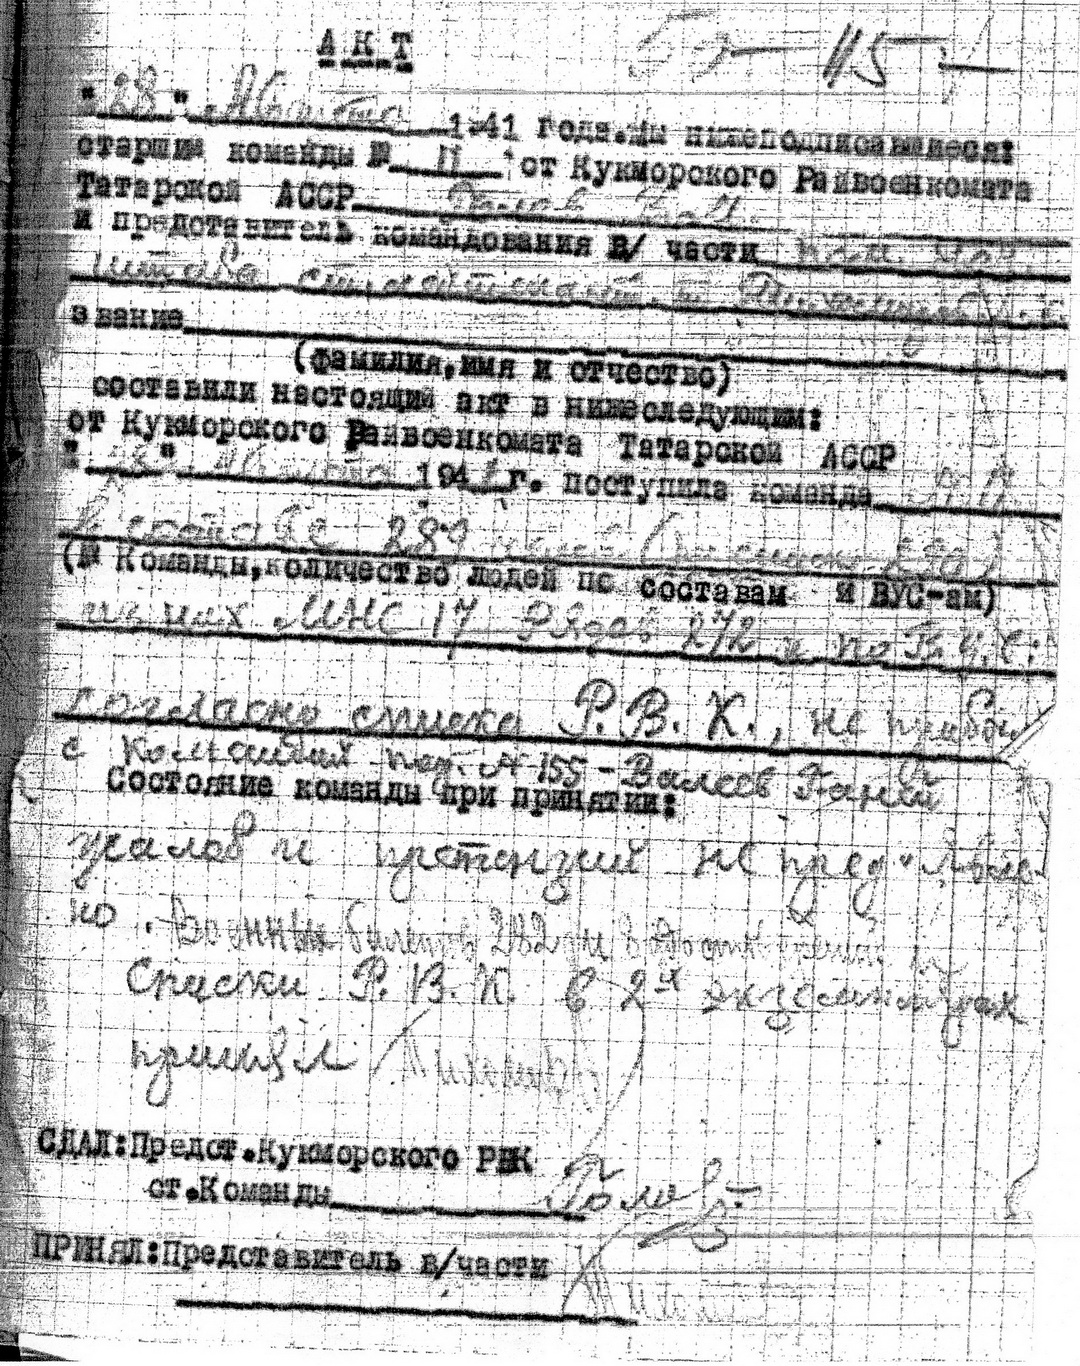 АКТ
115
"28" Августа 1941 года.мы нижеподписавшиеся:
старший команды № 11 от Кукморского Райвоенкомата
Татарской АССР
и представитель командования в/ части пом. нач.
штаба ст. лейтенант т.
звание
(фамилия,имя и отчество)
составили настоящий акт в нижеследующим:
от Кукморского Райвоенкомата Татарской АССР
"28" Августа 1941 г. поступила команда № 11
в составе 289
(№ Команды,количество людей по составам и ВУС-ам)
из них МНС 17 Рядов 272 и по В.У.С:
согласно списка Р.В.К., не прибыл
с командой под. № 155 - Валеев Гарей
Состояние команды при принятии:
жалоб и претензий не пред"явле-
но. Военных билетов 282
Списки Р.В.К. в 2х экземплярах
принял
СДАЛ:Предст.Кукморского РВК
ст.Команды
ПРИНЯЛ:Представитель в/части